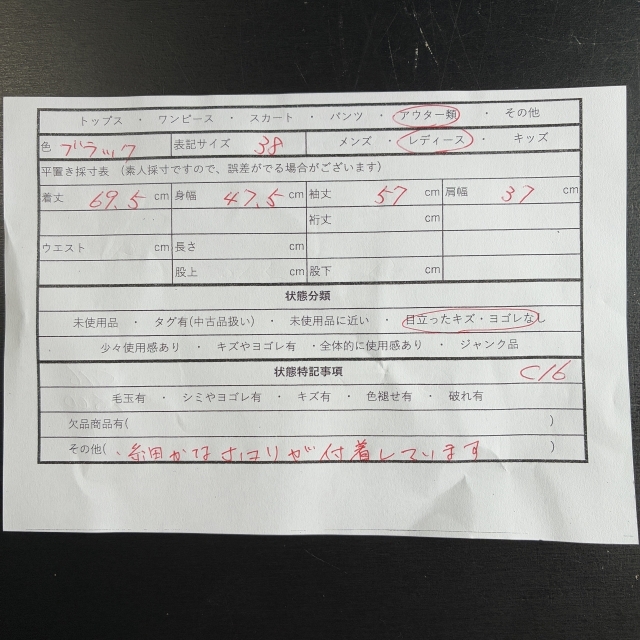 トップス ・ ワンピース ・ スカート ・ パンツ ・ アウター類 ・ その他
色 ブラック 表記サイズ 38 メンズ ・ レディース ・ キッズ
平置き採寸表 (素人採寸ですので、誤差がでる場合がございます)
着丈 69.5 cm 身幅 47.5 cm 袖丈 57 cm 肩幅 37 cm
裄丈 cm
ウエスト cm 長さ cm
股上 cm 股下 cm
状態分類
未使用品 ・ タグ有(中古品扱い) ・ 未使用品に近い ・ 目立ったキズ・ヨゴレなし
少々使用感あり ・ キズやヨゴレ有 ・全体的に使用感あり ・ ジャンク品
状態特記事項 C16
毛玉有 ・ シミやヨゴレ有 ・ キズ有 ・ 色褪せ有 ・ 破れ有
欠品商品有( )
その他( ・細かなホコリが付着しています )